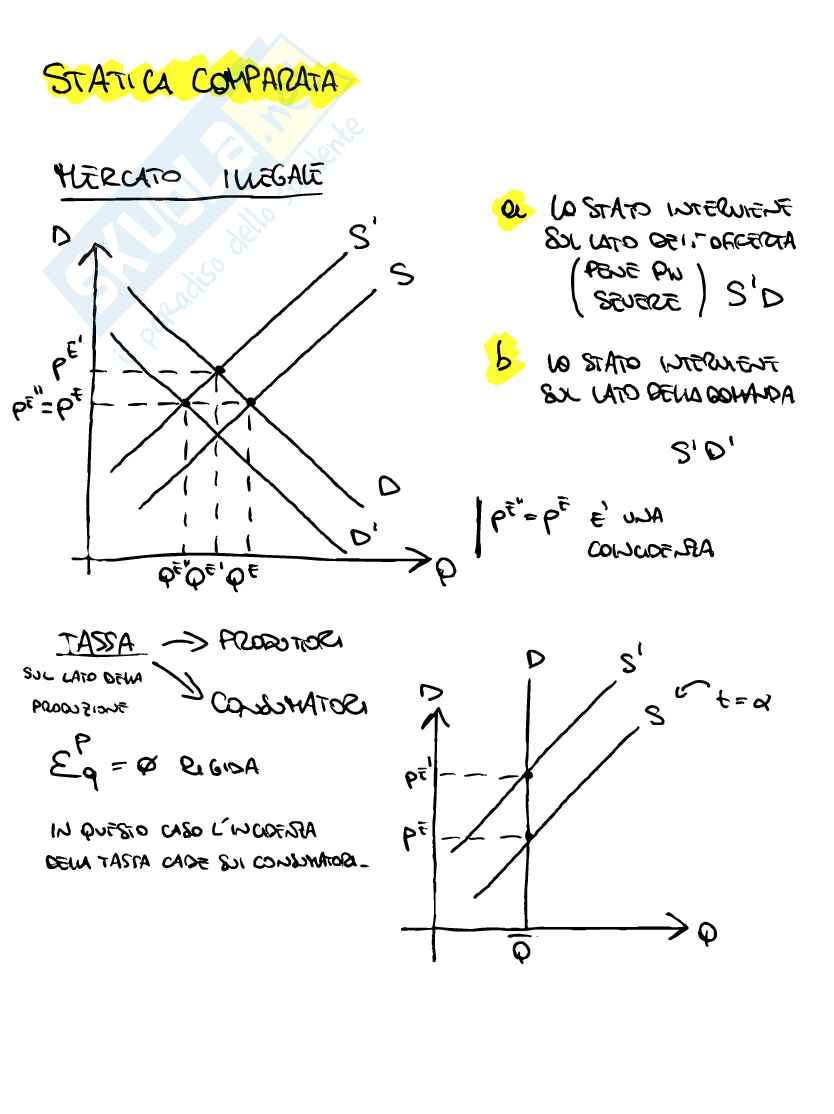 STATICA COMPARATA
SKUOLA.net
il paradiso dello studente
MERCATO ILLEGALE
D
S'
S
P^E'
P^E''=P^E
D
D'
Q^E'' Q^E' Q^E
Q
a LO STATO INTERVIENE
SUL LATO DELL'OFFERTA
(PENE PIÙ
SEVERE) S'D
b LO STATO INTERVIENE
SUL LATO DELLA DOMANDA
S'D'
P^E''=P^E E' UNA
COINCIDENZA
TASSA → PRODUTTORI
SUL LATO DELLA
PRODUZIONE
CONSUMATORI
ε^P_q = ø RIGIDA
IN QUESTO CASO L'INCIDENZA
DELLA TASSA CADE SUI CONSUMATORI_
D
D
S'
S
t=α
P^E'
P^E
Q̄
Q